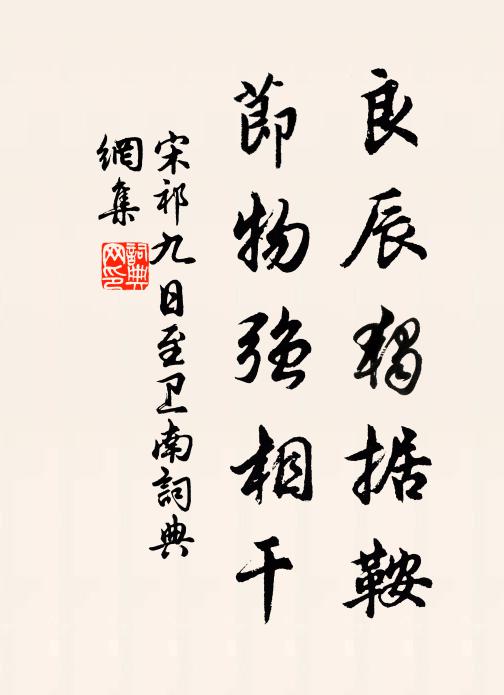 良辰獨据鞍
節物强相干
宋祁九日至卫南詞典
網集
詞典網印